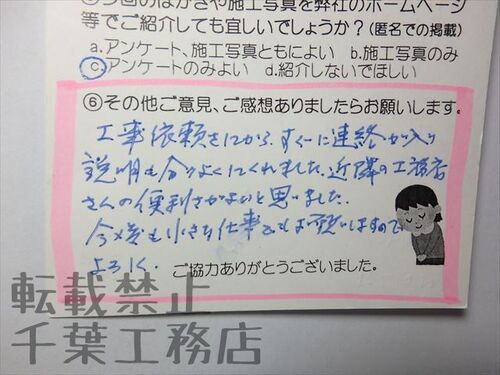 ⑤今回のはがきや施工写真を弊社のホームページ
等でご紹介しても宜しいでしょうか？(匿名での掲載)
a.アンケート、施工写真ともによい b.施工写真のみ
c.アンケートのみよい d.紹介しないでほしい
⑥その他ご意見、ご感想ありましたらお願いします。
工事依頼をしてから、すぐに連絡が入り
説明も分りよくしてくれました。近隣の工務店
さんの便利さがよいと思いました.
今後も小さな仕事でもお願いしますので
よろしく.
ご協力ありがとうございました。
転載禁止
千葉工務店